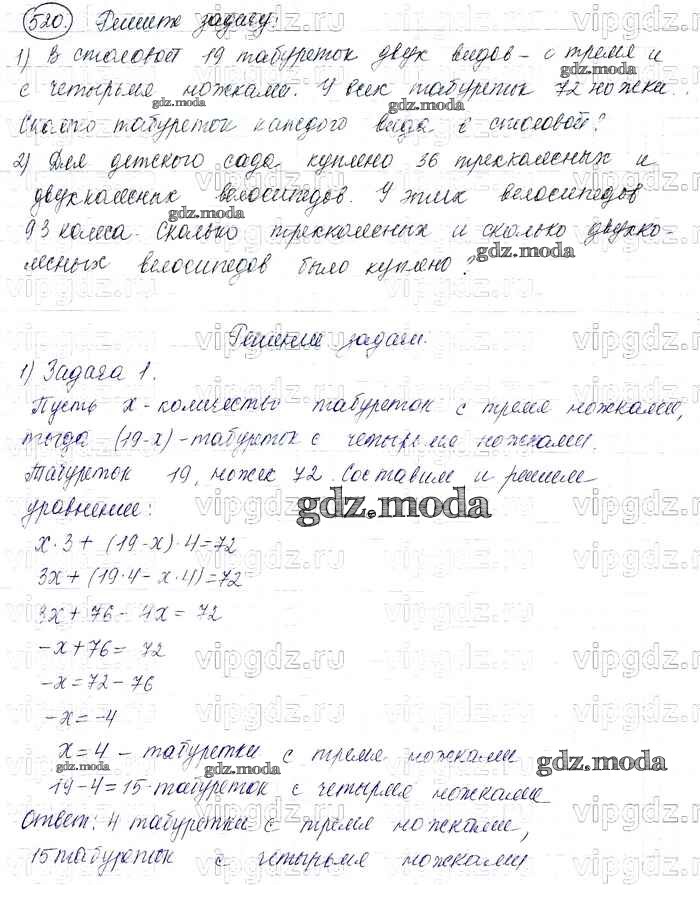 520 Решите задачу:
1) В столовой 19 табуреток двух видов – с тремя и
с четырьмя ножками. У всех табуреток 72 ножки.
Сколько табуреток каждого вида в столовой?
2) Для детского сада куплено 36 трехколесных и
двухколесных велосипедов. У этих велосипедов
93 колеса. Сколько трехколесных и сколько двухко-
лесных велосипедов было куплено?
Решение задачи.
1) Задача 1.
Пусть x - количество табуреток с тремя ножками,
тогда (19-x) - табуреток с четырьмя ножками.
Табуреток 19, ножек 72. Составим и решим
уравнение:
x·3 + (19-x)·4=72
3x+(19·4-x·4)=72
3x+76-4x=72
-x+76=72
-x=72-76
-x=-4
x=4 - табуретки с тремя ножками
19-4=15-табуреток с четырмя ножками
Ответ: 4 табуретки с тремя ножками,
15 табуреток с четырьмя ножками
gdz.moda
vipgdz.ru